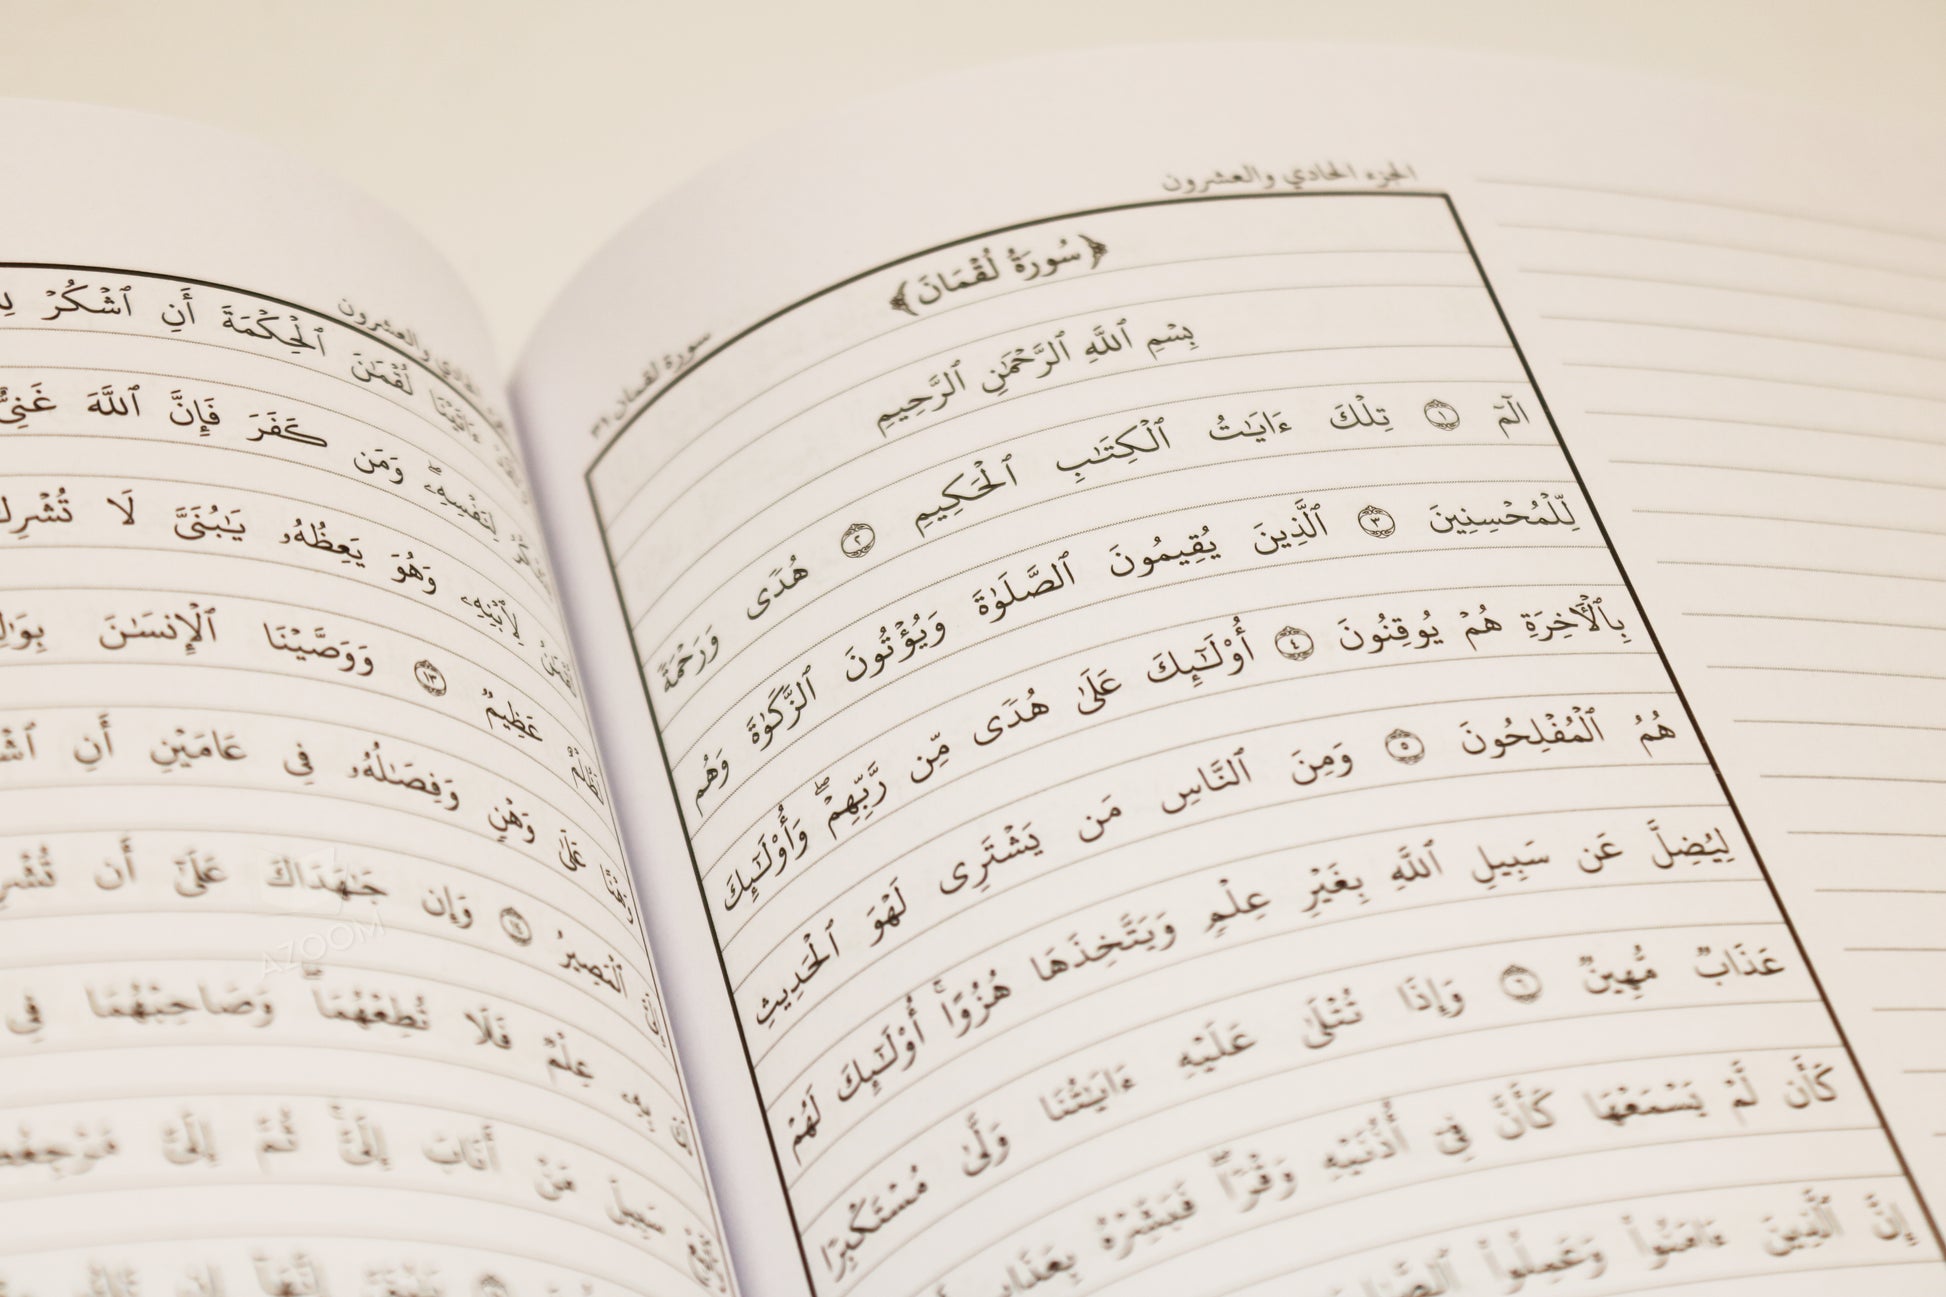 الجزء الحادي والعشرون
سورة لقمان ٣١
﴿سُورَةُ لُقْمَانَ﴾
بِسْمِ ٱللَّهِ ٱلرَّحْمَٰنِ ٱلرَّحِيمِ
الٓمٓ ١ تِلْكَ ءَايَٰتُ ٱلْكِتَٰبِ ٱلْحَكِيمِ ٢ هُدًى وَرَحْمَةً
لِّلْمُحْسِنِينَ ٣ ٱلَّذِينَ يُقِيمُونَ ٱلصَّلَوٰةَ وَيُؤْتُونَ ٱلزَّكَوٰةَ وَهُم
بِٱلْءَاخِرَةِ هُمْ يُوقِنُونَ ٤ أُو۟لَٰٓئِكَ عَلَىٰ هُدًى مِّن رَّبِّهِمْ ۖ وَأُو۟لَٰٓئِكَ
هُمُ ٱلْمُفْلِحُونَ ٥ وَمِنَ ٱلنَّاسِ مَن يَشْتَرِى لَهْوَ ٱلْحَدِيثِ
لِيُضِلَّ عَن سَبِيلِ ٱللَّهِ بِغَيْرِ عِلْمٍ وَيَتَّخِذَهَا هُزُوًا ۚ أُو۟لَٰٓئِكَ لَهُمْ
عَذَابٌ مُّهِينٌ ٦ وَإِذَا تُتْلَىٰ عَلَيْهِ ءَايَٰتُنَا وَلَّىٰ مُسْتَكْبِرًا
كَأَن لَّمْ يَسْمَعْهَا كَأَنَّ فِىٓ أُذُنَيْهِ وَقْرًا ۖ فَبَشِّرْهُ بِعَذَابٍ
إِنَّ ٱلَّذِينَ ءَامَنُوا۟ وَعَمِلُوا۟
والعشرون
لُقْمَٰنَ ٱلْحِكْمَةَ أَنِ ٱشْكُرْ
لِنَفْسِهِۦ ۖ وَمَن كَفَرَ فَإِنَّ ٱللَّهَ غَنِىٌّ
لِٱبْنِهِۦ وَهُوَ يَعِظُهُۥ يَٰبُنَىَّ لَا
عَظِيمٌ ١٣ وَوَصَّيْنَا ٱلْإِنسَٰنَ
عَلَىٰ وَهْنٍ وَفِصَٰلُهُۥ فِى عَامَيْنِ أَنِ
ٱلْمَصِيرُ ١٤ وَإِن جَٰهَدَاكَ عَلَىٰٓ أَن
عِلْمٌ فَلَا تُطِعْهُمَا ۖ وَصَاحِبْهُمَا فِى
سَبِيلَ مَنْ أَنَابَ إِلَىَّ ۚ ثُمَّ إِلَىَّ
AZOOM